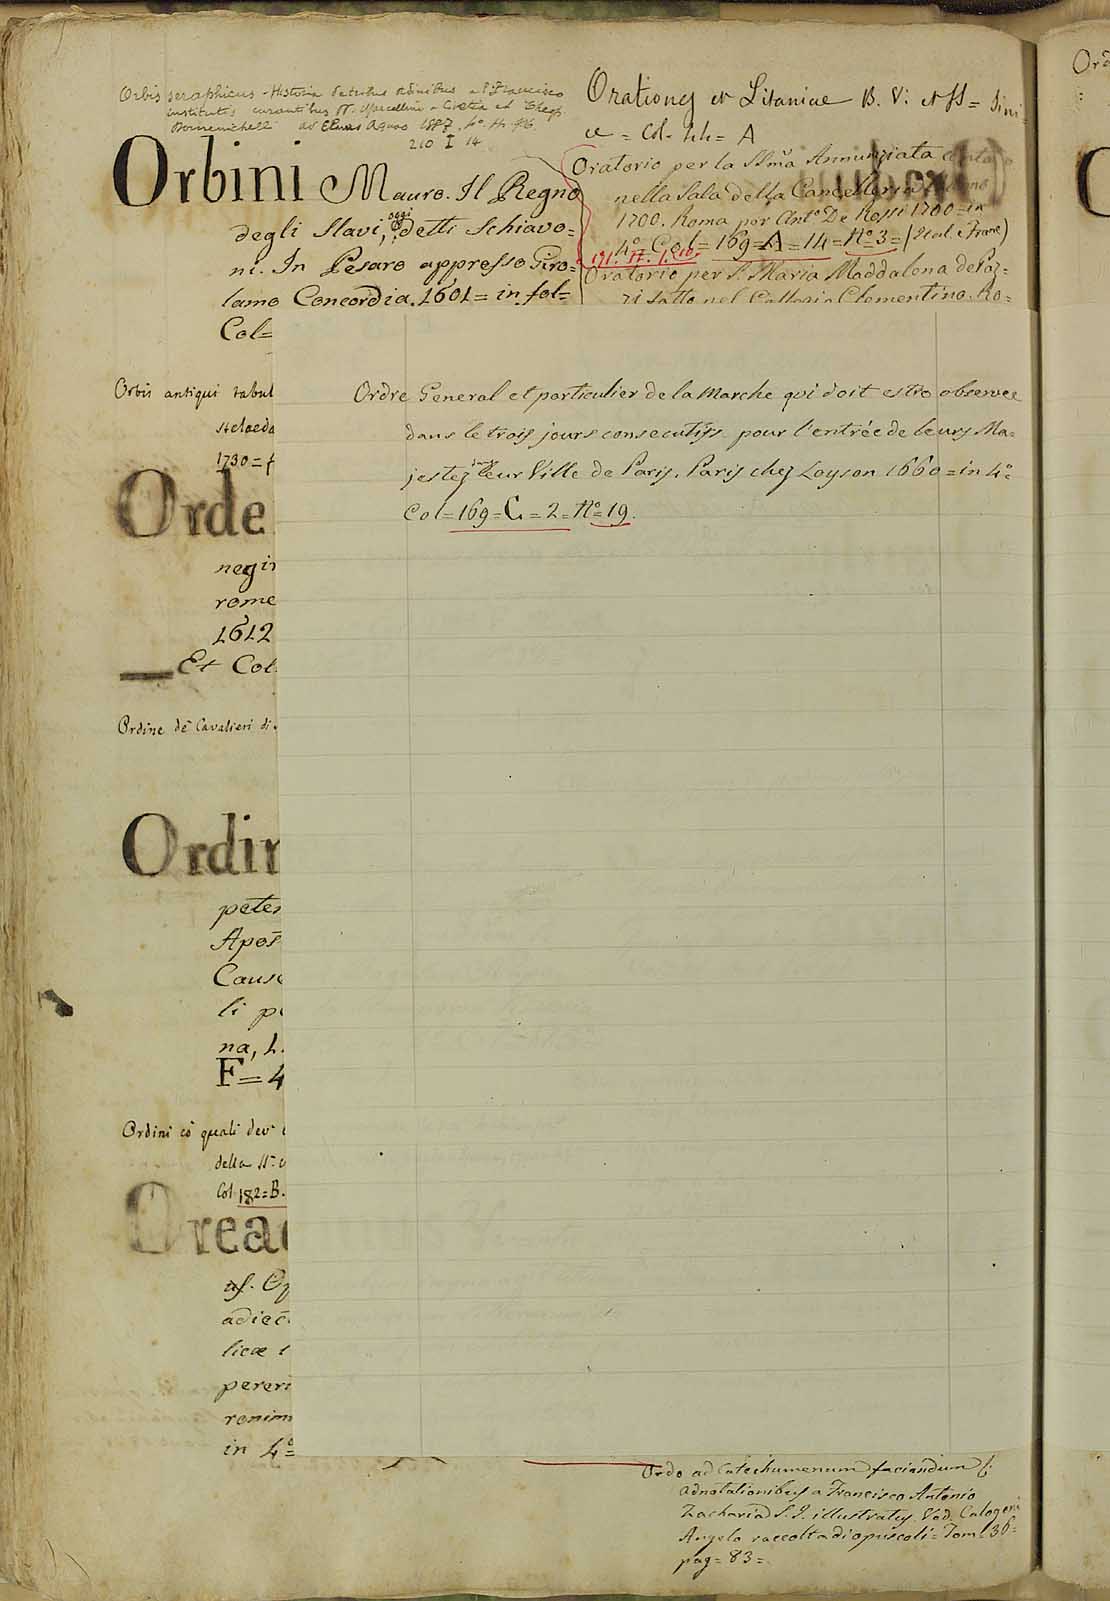 Orbis seraphicus - Historia de tribus ordinibus a S. Francisco
institutis curantibus
Dominichelli ad Claras Aquas 1887. 4° H. 96.
210 I 14
Orbini Mauro. Il Regno
degli Slavi, oggi detti Schiavo=
ni. In Pesaro appresso Giro=
lamo Concordia. 1601 = in fol=
Col=
Orbis antiqui tabul
1730 = f
Orde
negir
rome
1612
— Et Col.
Ordine de Cavalieri di
Ordin
peter
Apos
Caus
li p
na, L.
F = 4
Ordini co quali dev
della SS.
Col 182 = B.
Orea
as. Op
adiec
licæ
perer
ronim
in 4°=
Orationes et Litaniae B. V. et SS = Sini=
ce = Col. hh = A
Oratorio per la SSma Annunziata
nella Sala della Cancelleria
1700. Roma per Ant° De Rossi 1700 = in
4° Col = 169 = A = 14 = N° 3 =
191. H. 1.
Oratorio per S. Maria Maddalena de Paz=
zi Clementino. Ro=
Ordre General et particulier de la Marche qui doit estre observee
dans le trois jours consecutifs pour l'entrée de leurs Ma=
jestez dans leur Ville de Paris. Paris chez Loyson 1660 = in 4°
Col = 169 = C. = 2 = N° = 19.
Ordo ad Catechumenum faciendum
adnotationibus a Francisco Antonio
Zacharia S. J. illustratus. Vid. Calogerà
Angelo raccolta di opuscoli = Tom. 36 =
pag = 83 =